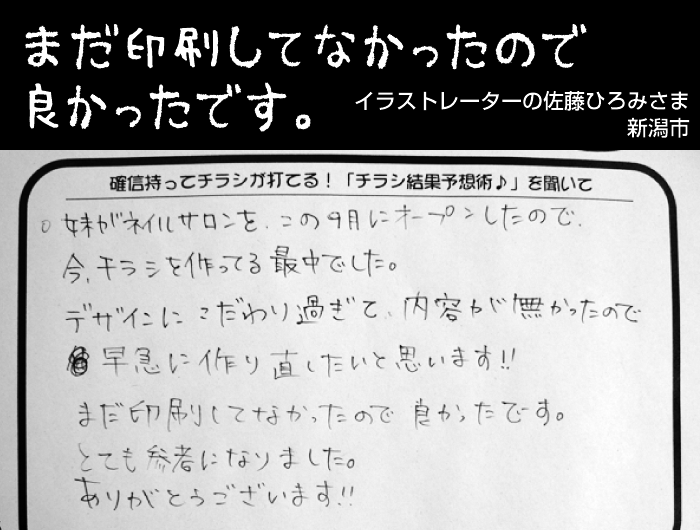 まだ印刷してなかったので
良かったです。
イラストレーターの佐藤ひろみさま
新潟市
確信持ってチラシが打てる!「チラシ結果予想術♪」を聞いて
○妹がネイルサロンを、この9月にオープンしたので、
今、チラシを作ってる最中でした。
デザインにこだわり過ぎて、内容が無かったので
早急に作り直したいと思います!!
まだ印刷してなかったので良かったです。
とても参考になりました。
ありがとうございます!!